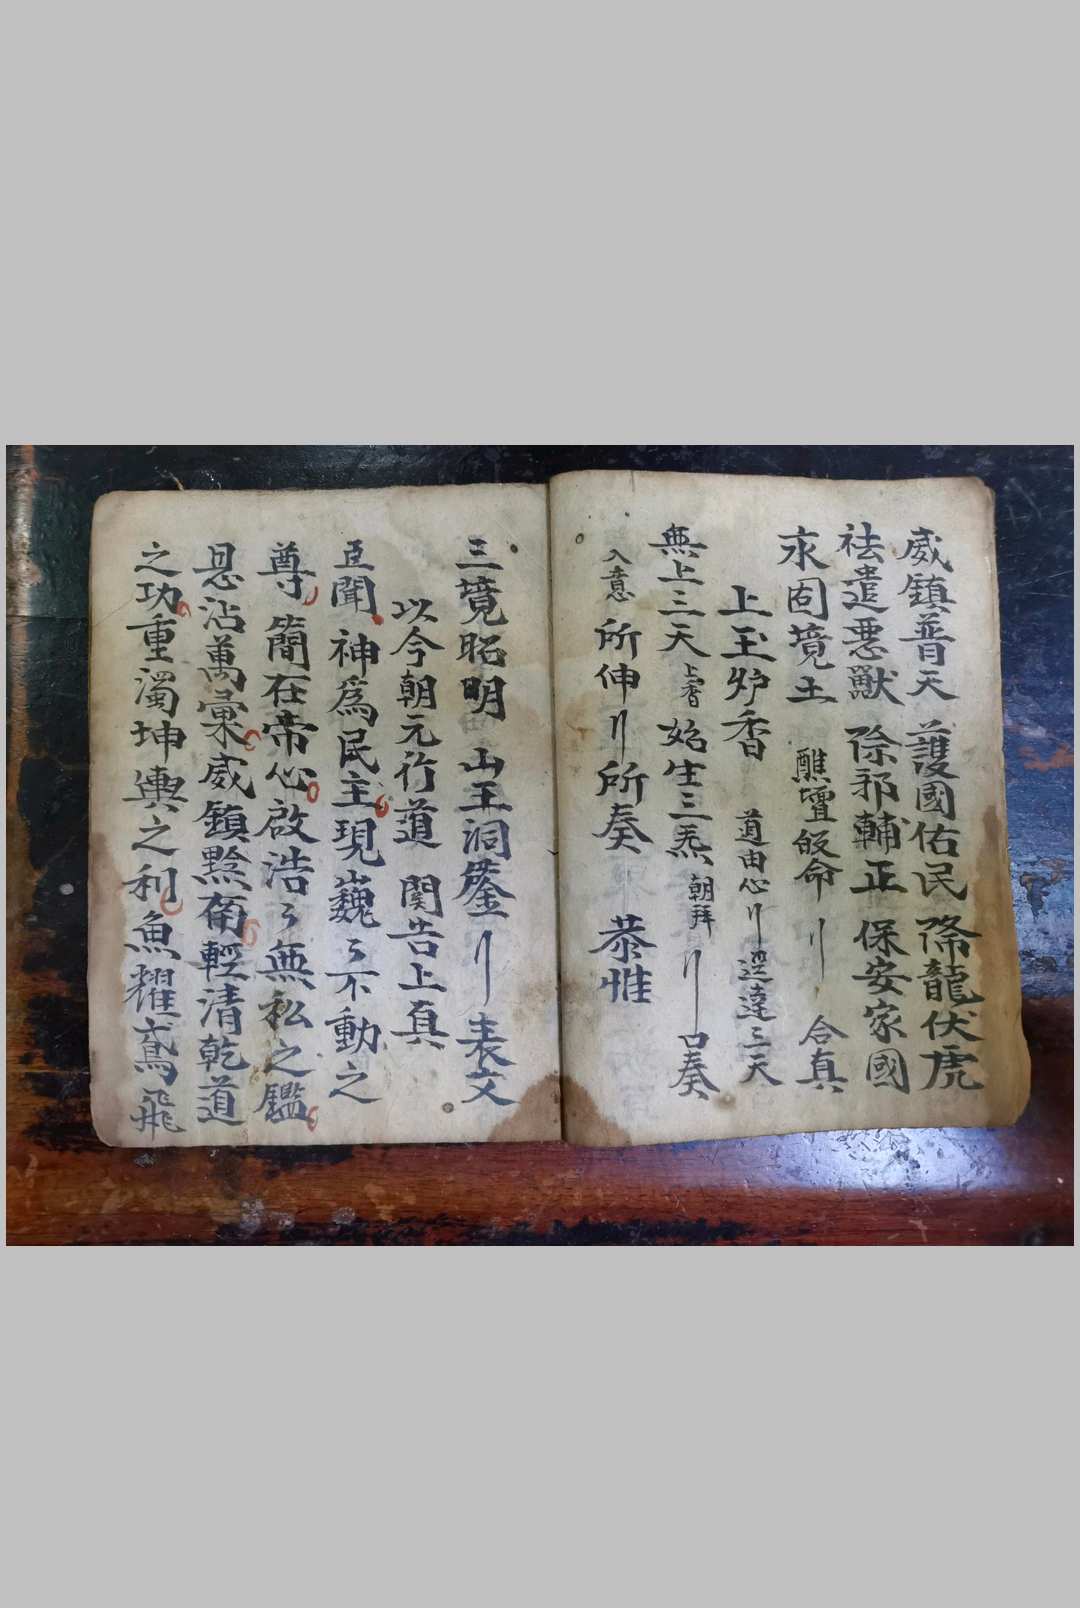 威鎮普天 護國佑民 降龍伏虎
祛遣惡獸 除邪輔正 保安家國
永固境土 醮壇 命 合真
上玉炉香 道由心 逕達三天
無上三天 上香 始生三炁 朝拜 口奏
入意 所伸 所奏 恭惟
三境昭明 山王洞鑒 表文
以今朝元行道 関告上真
臣聞 神為民主現巍々不動之
尊 簡在帝心啟浩々無私之鑑
恩沾萬彙威鎮黔 輕清乾道
之功重濁坤輿之利魚耀鳶飛